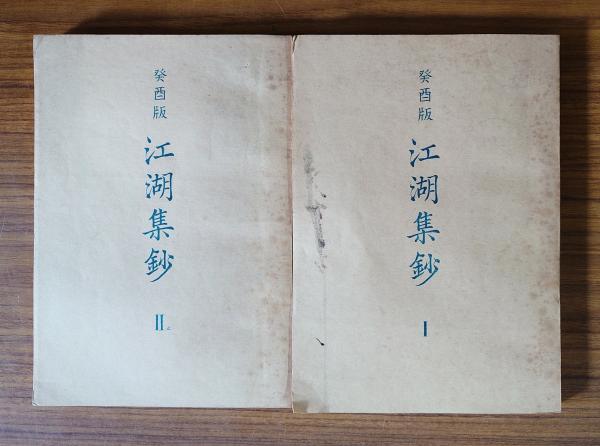 癸酉版
江湖集鈔
I
癸酉版
江湖集鈔
II